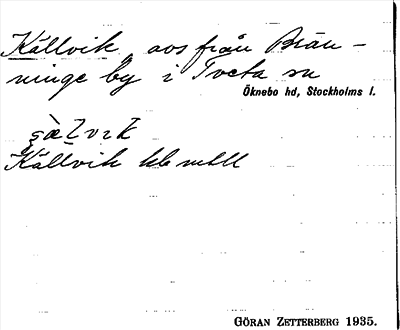 Källvik, avs från Brän-
ninge by i Tveta sn
Öknebo hd, Stockholms l.
Källvik
GÖRAN ZETTERBERG 1935.